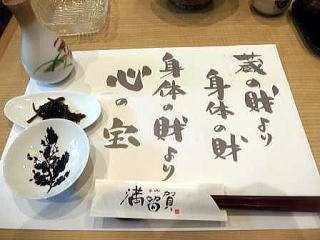 蔵の財より
身体の財
身体の財より
心の宝
満留賀